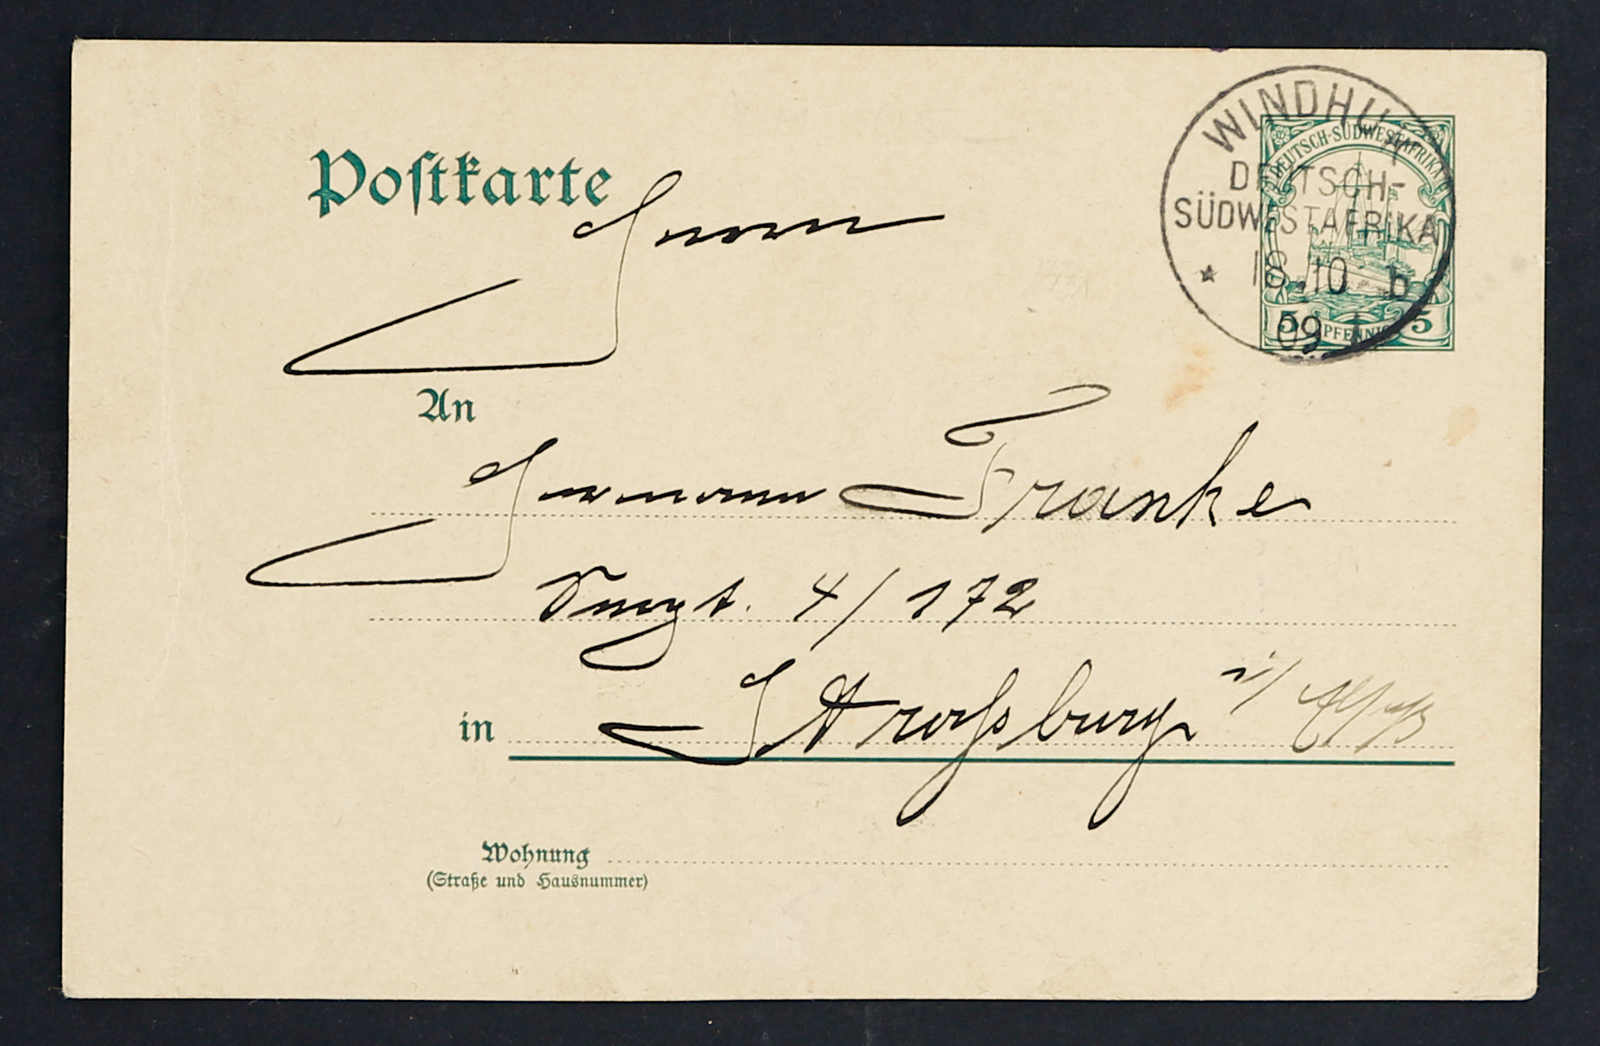 Postkarte
WINDHUK
DEUTSCH-
SÜDWESTAFRIKA
18.10 b
09
DEUTSCH-SÜDWESTAFRIKA
5 PFENNIG 5
Herrn
An
Hermann Franke
4/172
in Straßburg i/ Elsaß
Wohnung
(Straße und Hausnummer)